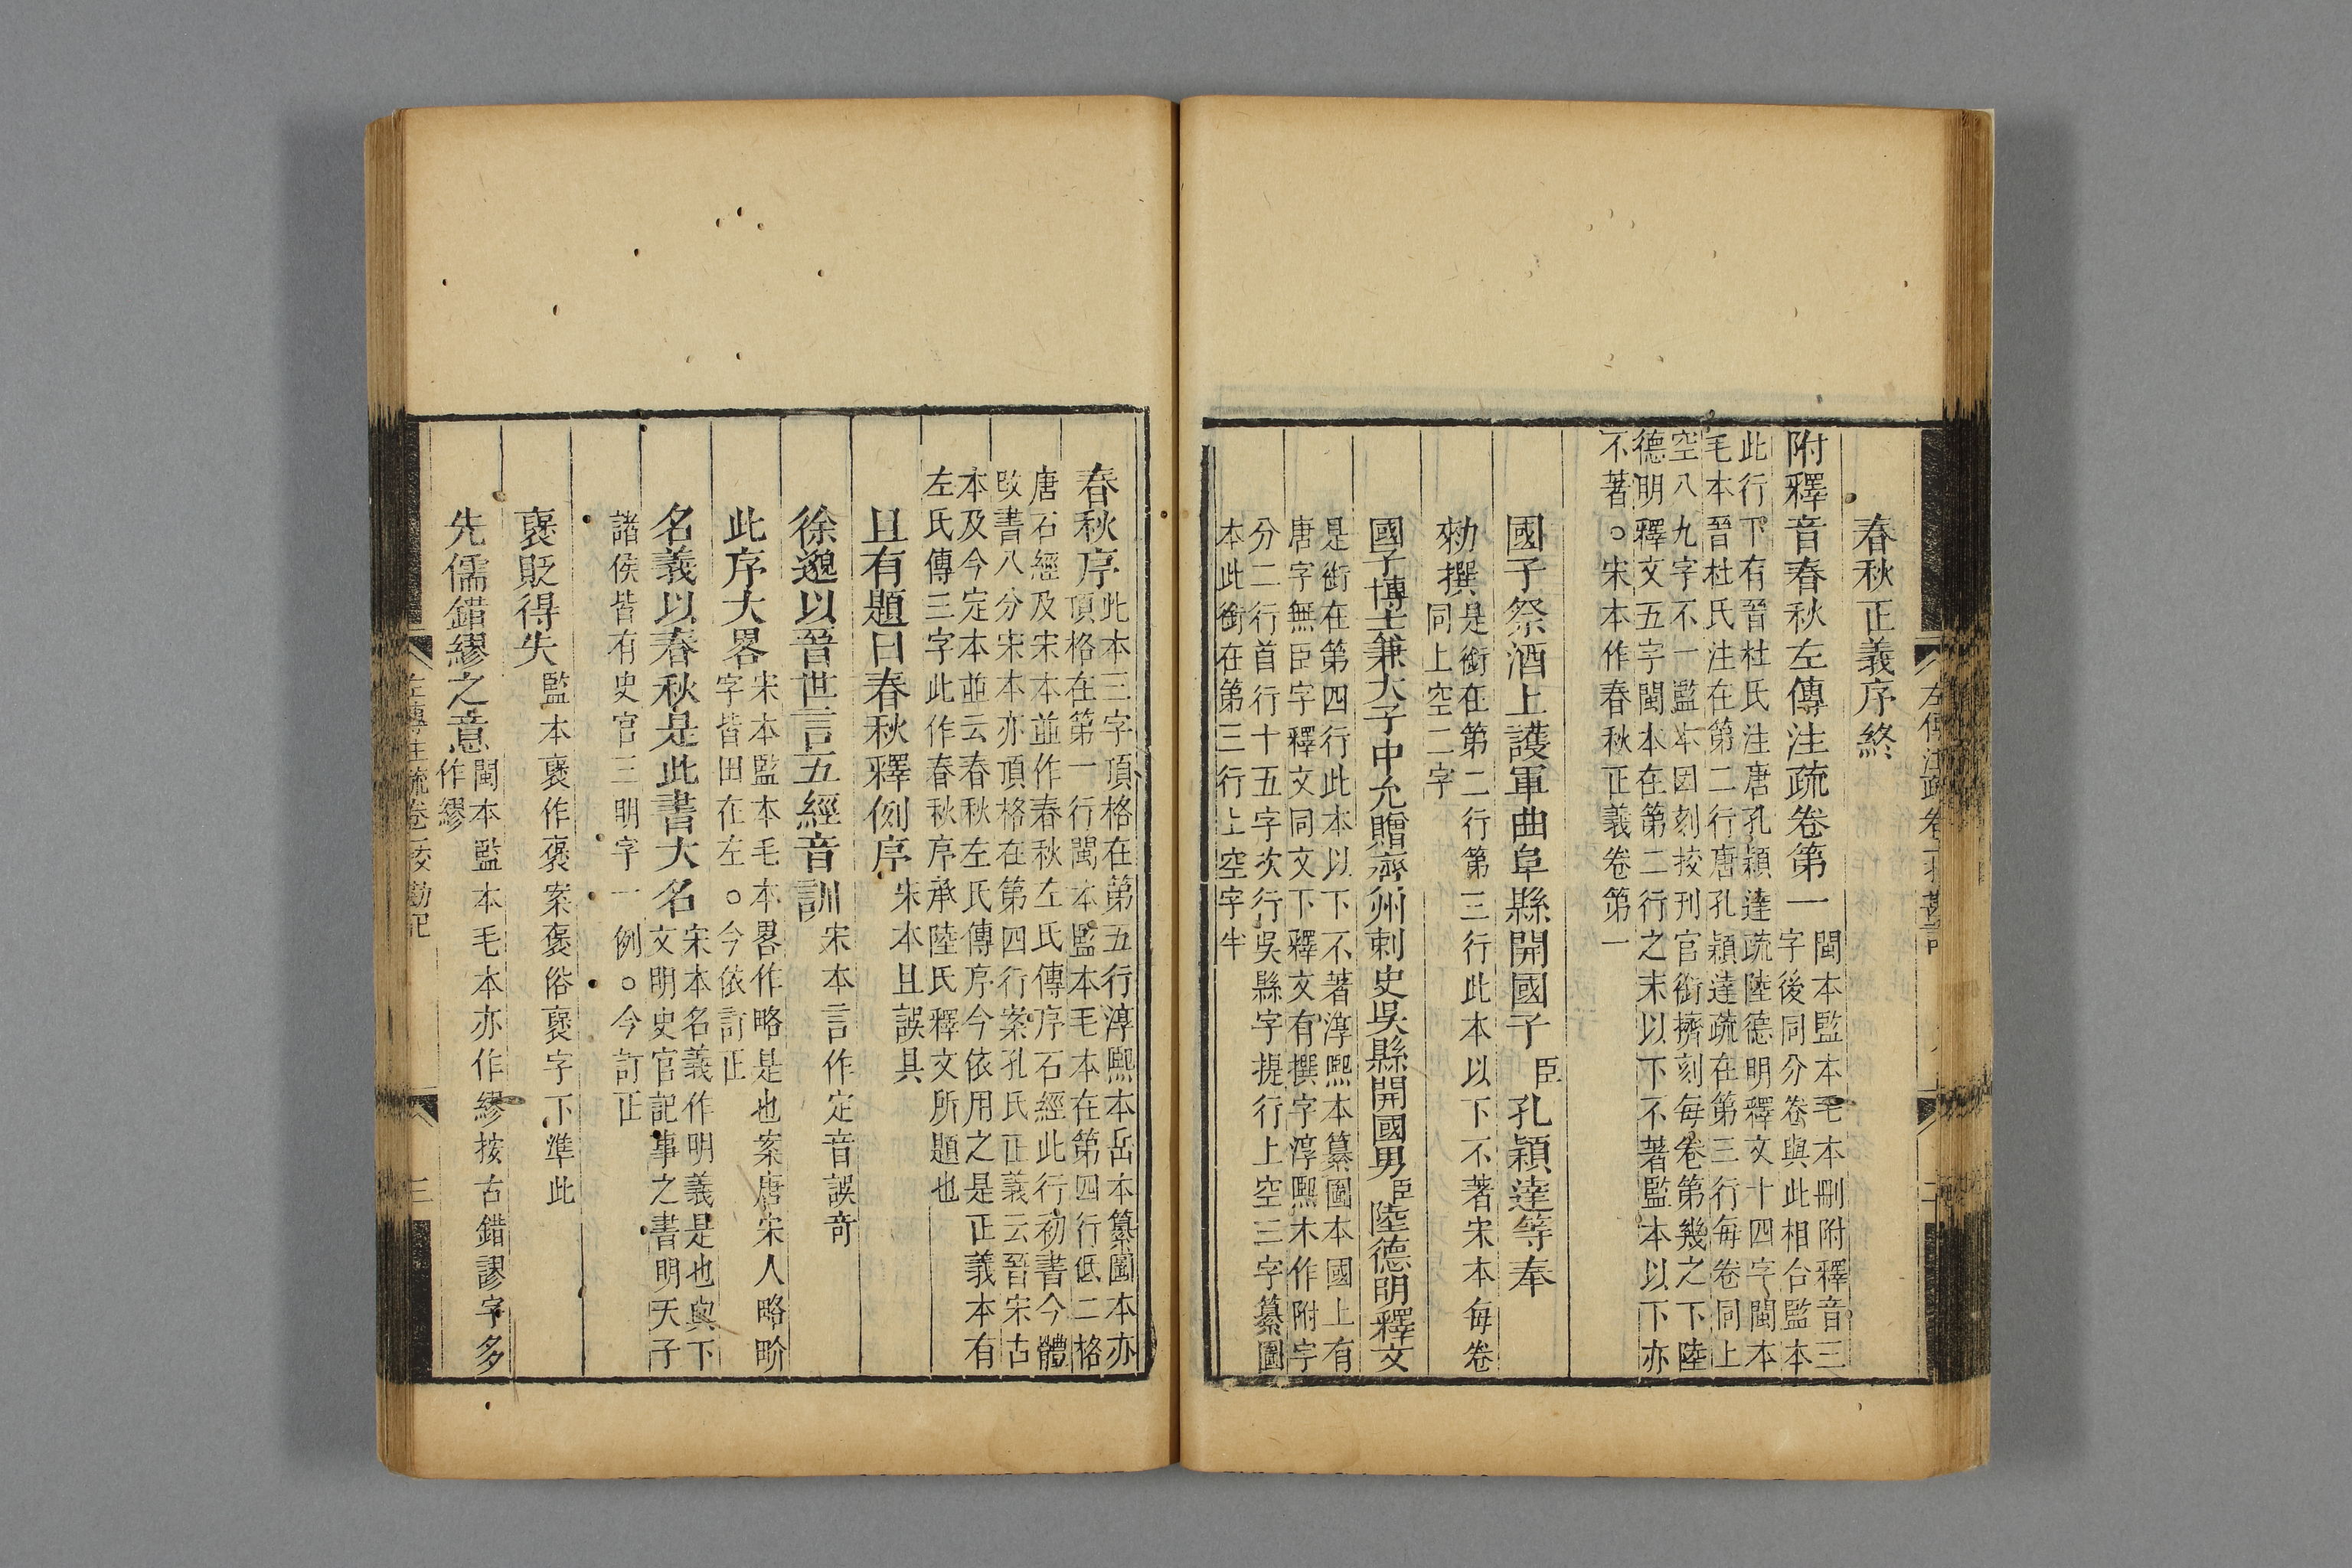 春秋正義序終
附釋音春秋左傳注疏卷第一
閩本監本毛本刪附釋音三
字後同分卷與此相合監本
此行下有晉杜氏注唐孔穎達疏陸德明釋文十四字閩本
毛本晉杜氏注在第二行唐孔穎達疏在第三行每卷同上
空八九字不一監本因刻挍刊官銜擠刻每卷第幾之下陸
德明釋文五字閩本在第二行之末以下不著監本以下亦
不著。宋本作春秋正義卷第一
國子祭酒上護軍曲阜縣開國子臣孔穎達等奉
勑撰
是銜在第二行第三行此本以下不著宋本每卷
同上空二字
國子博士兼太子中允贈齊州刺史吳縣開國男臣陸德明釋文
是銜在第四行此本以下不著淳熙本纂圖本國上有
唐字無臣字釋文同文下釋文有撰字淳熙本作附字
分二行首行十五字次行吳縣字提行上空三字纂圖
本此銜在第三行上空字半
春秋序
此本三字頂格在第五行淳熙本岳本纂圖本亦
頂格在第一行閩本監本毛本在第四行低二格
唐石經及宋本並作春秋左氏傳序石經此行初書今體
改書八分宋本亦頂格在第四行案孔氏正義云晉宋古
本及今定本並云春秋左氏傳序今依用之是正義本有
左氏傳三字此作春秋序承陸氏釋文所題也
且有題曰春秋釋例序
宋本且誤具
徐邈以晉世言五經音訓
宋本言作定音誤竒
此序大畧
宋本監本毛本畧作略是也案唐宋人略畍
字皆田在左。今依訂正
名義以春秋是此書大名
宋本名義作明義是也與下
文明史官記事之書明天子
諸侯皆有史官三明字一例。今訂正
襃貶得失
監本襃作褒案褒俗襃字下準此
先儒錯繆之意
閩本監本毛本亦作繆按古錯謬字多
作繆
左傳注疏卷一挍勘記
三